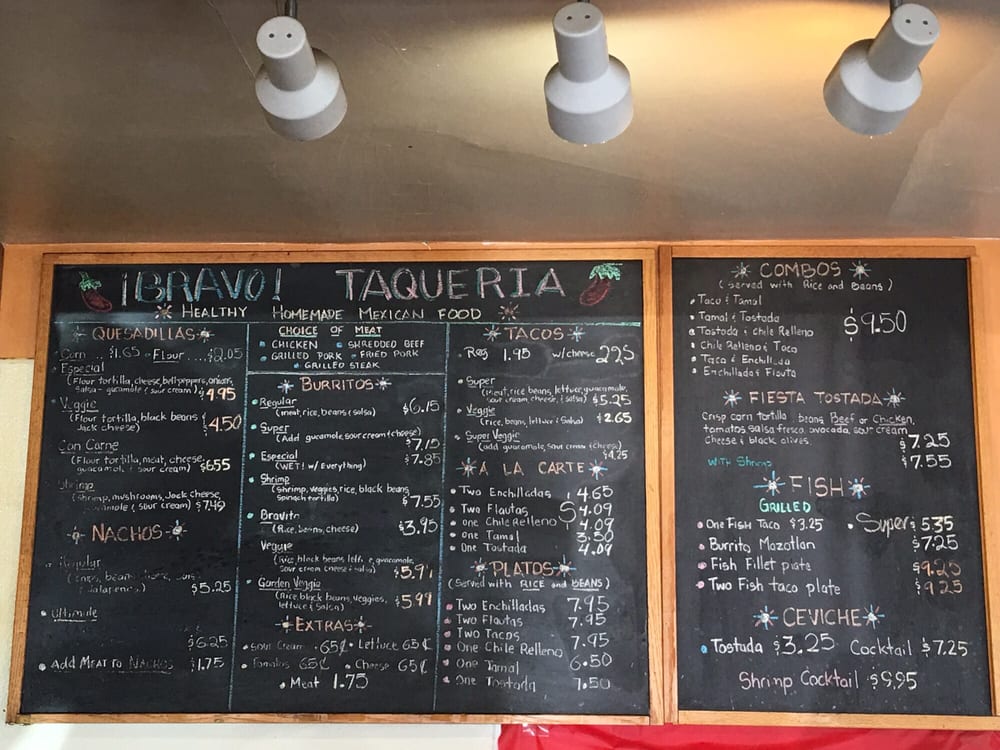 ¡BRAVO! TAQUERIA
HEALTHY HOMEMADE MEXICAN FOOD
QUESADILLAS
Corn ... $1.65 Flour ..... $2.05
Especial
(Flour tortilla, cheese, bell peppers, onions,
salsa - guacamole & sour cream) $4.95
Veggie
(Flour tortilla, black beans &
Jack cheese) $4.50
Con Carne
(Flour tortilla, meat, cheese,
guacamole & sour cream) $6.55
Shrimp
(Shrimp, mushrooms, Jack cheese,
guacamole & sour cream) $7.49
NACHOS
Regular
beans
Jalapenos) $5.25
Ultimate
$6.25
Add Meat to NACHOS $1.75
CHOICE OF MEAT
CHICKEN SHREDDED BEEF
GRILLED PORK FRIED PORK
GRILLED STEAK
BURRITOS
Regular
(meat, rice, beans & salsa) $6.15
Super
(Add guacamole, sour cream & cheese) $7.15
Especial
(WET! w/ Everything) $7.85
Shrimp
(Shrimp, veggies, rice, black beans,
Spinach tortilla) $7.55
Bravito
(Rice, beans, cheese) $3.95
Veggie
(Rice, black beans, lettuce, guacamole,
sour cream cheese & salsa) $5.91
Garden Veggie
(Rice, black beans, veggies,
lettuce & salsa) $5.99
EXTRAS
Sour Cream 65¢ Lettuce 65¢
Tomatos 65¢ Cheese 65¢
Meat 1.75
TACOS
Reg 1.95 w/cheese 2.25
Super
(Meat, rice, beans, lettuce, guacamole,
sour cream, cheese, & salsa) $5.25
Veggie
(rice, beans, lettuce & salsa) $2.65
Super Veggie
(add guacamole, sour cream & cheese)
$4.25
A LA CARTE
Two Enchiladas 4.65
Two Flautas $4.09
one Chile Relleno 4.09
one Tamal 3.50
One Tostada 4.09
PLATOS
(Served with RICE and BEANS)
Two Enchilladas 7.95
Two Flautas 7.95
Two Tacos
One Chile Relleno 7.95
One Tamal 6.50
One Tostada 7.50
COMBOS
(Served with Rice and Beans)
Taco & Tamal
Tamal & Tostada $9.50
Tostada & Chile Relleno
Chile Relleno & Taco
Taco & Enchillada
Enchilada & Flauta
FIESTA TOSTADA
Crisp corn tortilla, beans, Beef or Chicken,
tomatos salsa fresca, avocada, sour cream
Cheese & black olives. $7.25
with Shrimp $7.55
FISH
GRILLED
One Fish Taco $3.25 Super $5.35
Burrito Mazatlan $7.25
Fish Fillet plate $9.25
Two Fish taco plate $9.25
CEVICHE
Tostada $3.25 Cocktail $7.25
Shrimp Cocktail $9.95